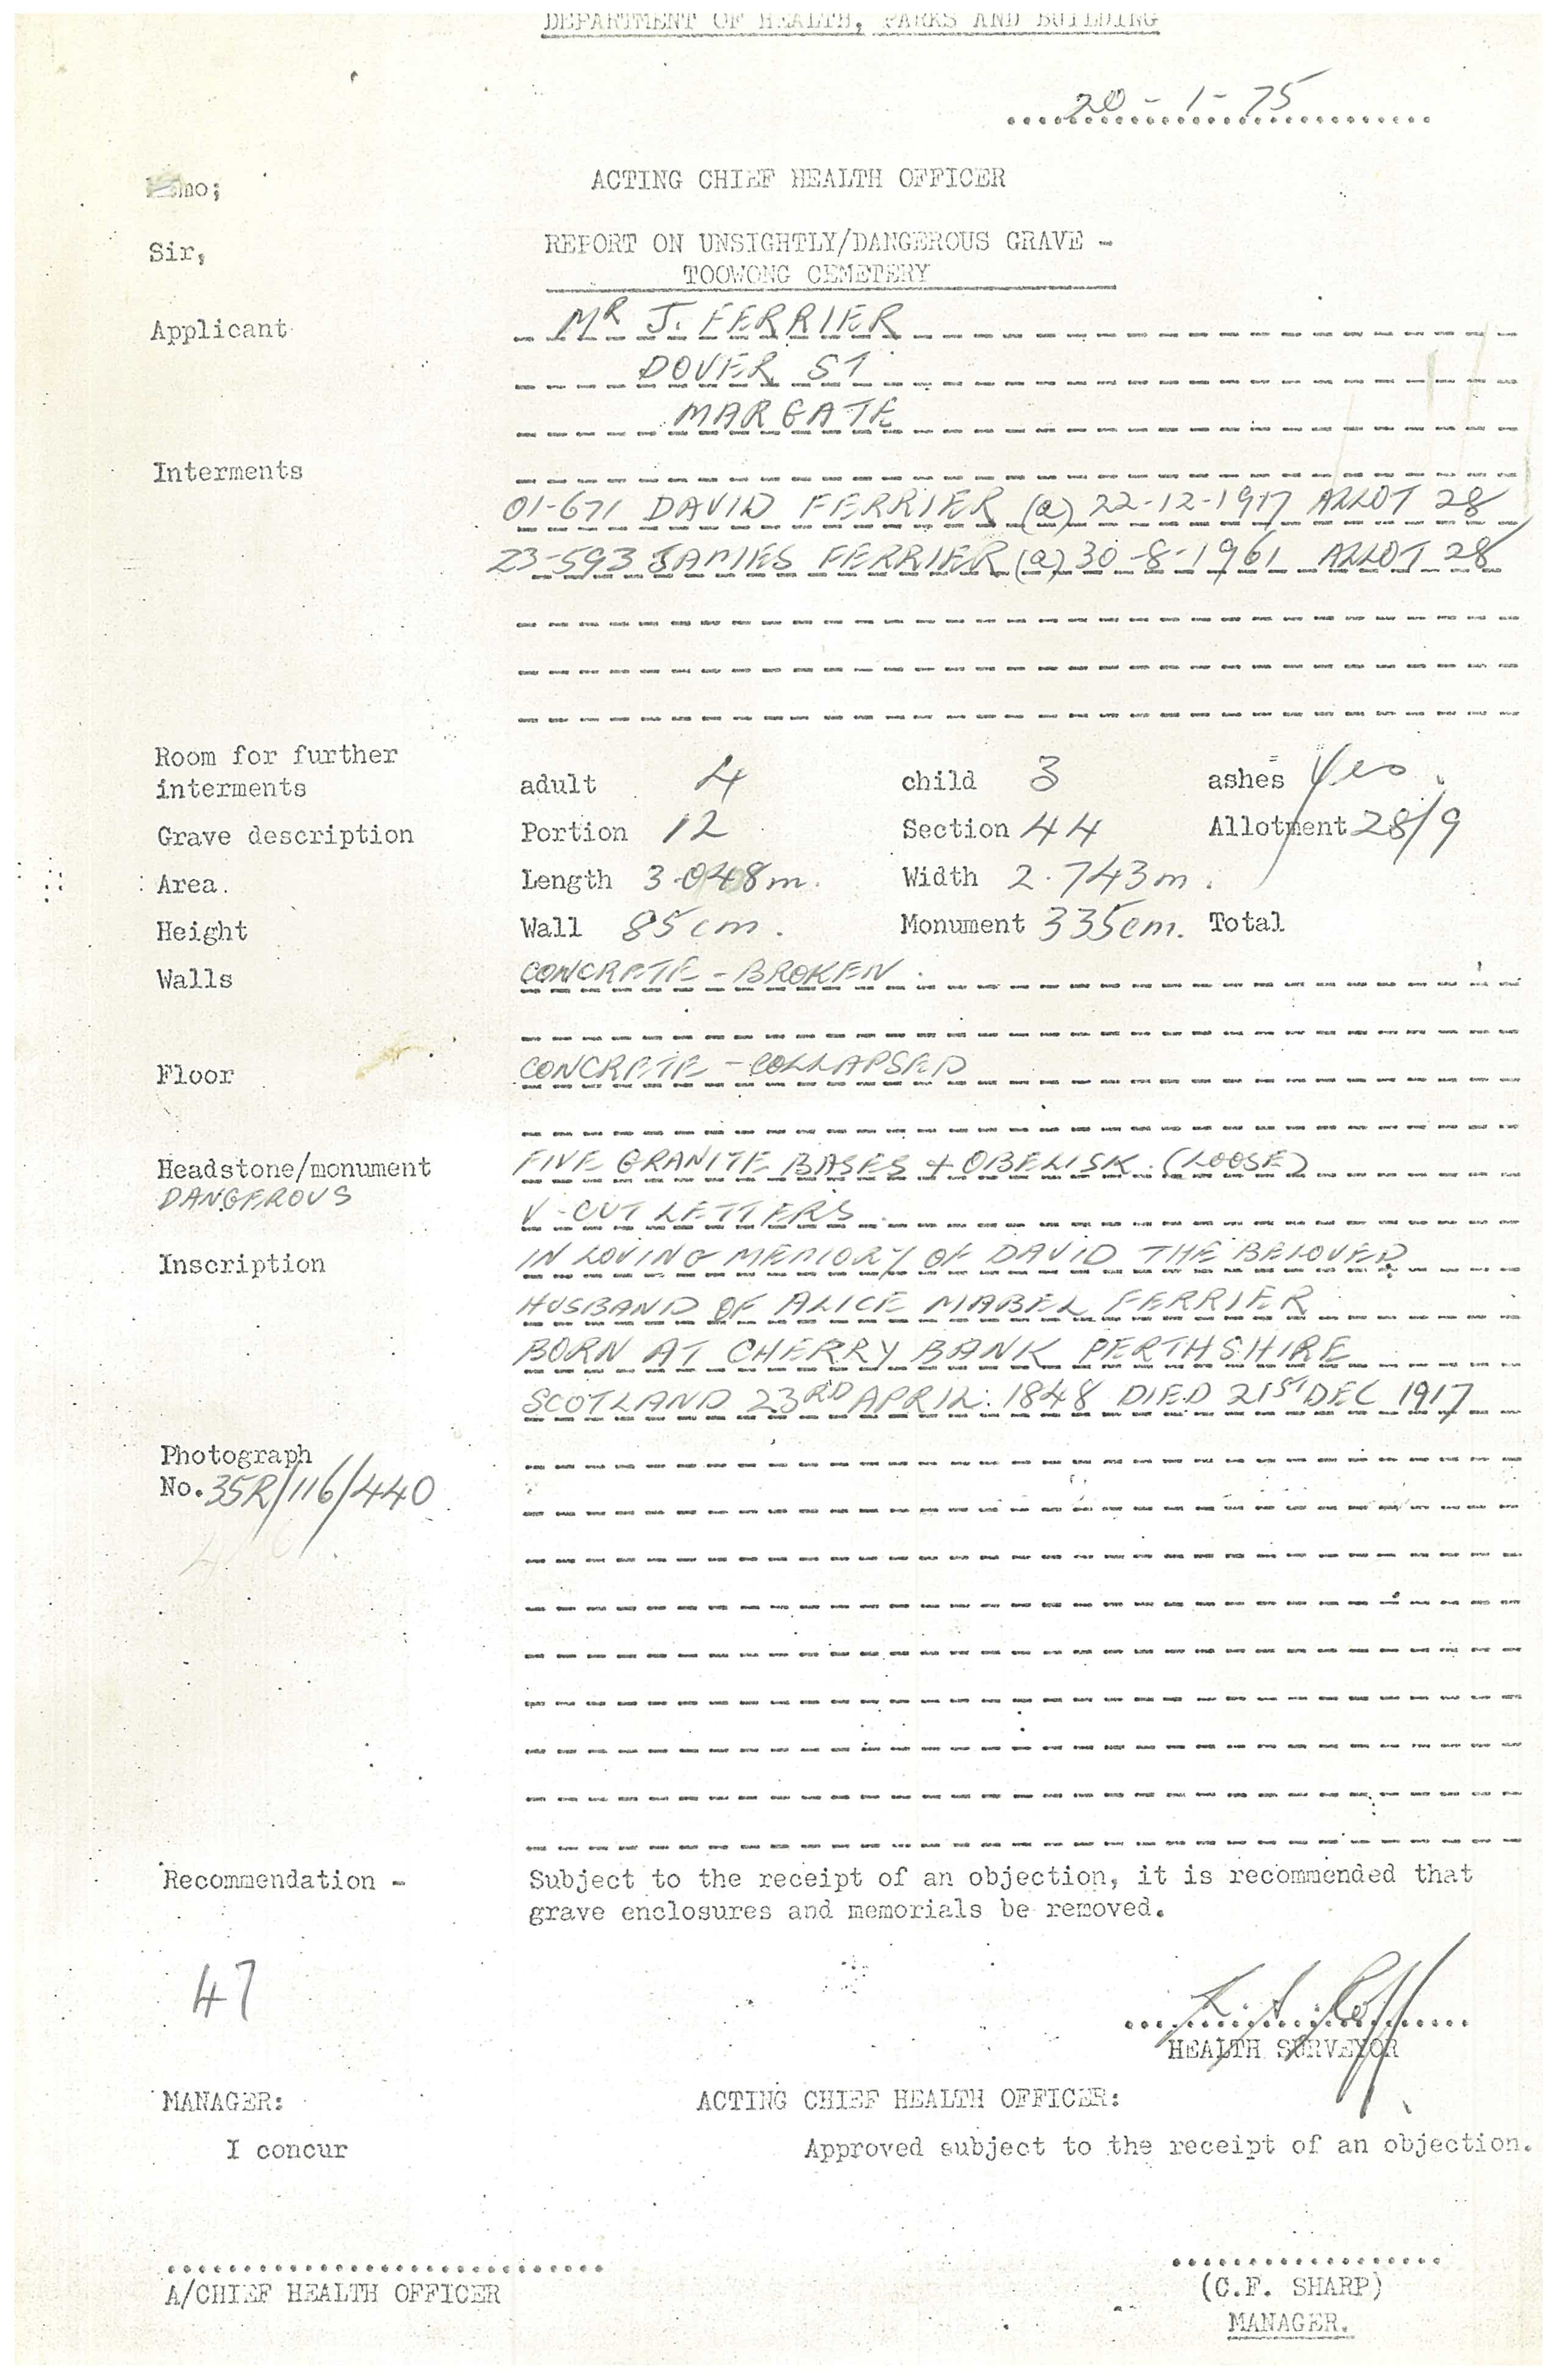 DEPARTMENT OF HEALTH, PARKS AND BUILDING
20-1-75
ACTING CHIEF HEALTH OFFICER
Sir,
REPORT ON UNSIGHTLY/DANGEROUS GRAVE -
TOOWONG CEMETERY
Applicant MR J. FERRIER
DOVER ST
MARGATE
Interments
01-671 DAVID FERRIER (a) 22-12-1917 ALLOT 28
23-593 JAMES FERRIER (a) 30-8-1961 ALLOT 28
Room for further
interments adult 4 child 3 ashes Yes.
Grave description Portion 12 Section 44 Allotment 28/9
Area. Length 3.048m. Width 2.743m.
Height Wall 85cm. Monument 335cm. Total
Walls CONCRETE - BROKEN.
Floor CONCRETE - COLLAPSED
Headstone/monument FIVE GRANITE BASES + OBELISK. (LOOSE)
DANGEROUS V-CUT LETTERS.
Inscription IN LOVING MEMORY OF DAVID THE BELOVED
HUSBAND OF ALICE MABEL FERRIER
BORN AT CHERRY BANK PERTHSHIRE
SCOTLAND 23RD APRIL. 1848 DIED 21ST DEC 1917
Photograph
No. 35R/116/440
Recommendation - Subject to the receipt of an objection, it is recommended that
grave enclosures and memorials be removed.
47
HEALTH SURVEYOR
MANAGER: ACTING CHIEF HEALTH OFFICER:
I concur Approved subject to the receipt of an objection.
A/CHIEF HEALTH OFFICER (C.F. SHARP)
MANAGER.